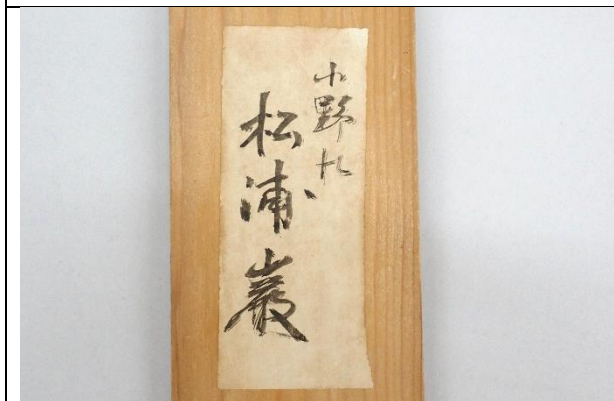 小野村
松浦巌